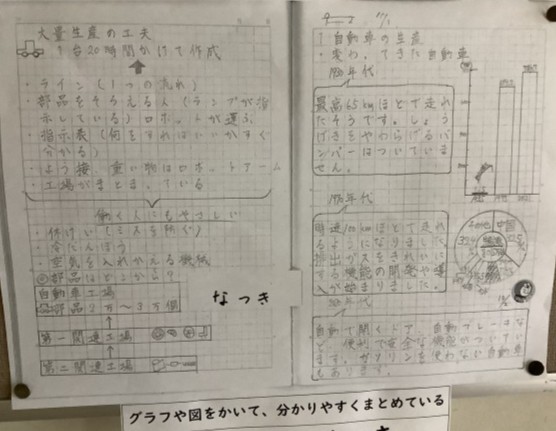 大量生産の工夫
1台20時間かけて作成
・ライン(1つの流れ)
・部品をそろえる人(ランプが指
示している)ロボットが運ぶ
・指示表(何をすればいいかすぐ
分かる)
・よう接、重い物はロボットアーム
・工場がまとまっている
働く人にもやさしい
空気を入れかえる機械
◎部品はどこから?
自動車工場
部品2万〜3万個
第一関連工場
第二関連工場
なつき
自動車の生産
・変わってきた自動車
年代
最高65kmほどで走れ
たそうです。しょう
げきをやわらげるバ
ンパーはついていま
せん。
年代
ほどで走れ
るようになりました。
排出ガスをきれいに
する機能の開発や導
入が始まりました。
年代
自動で開くドア、自動ブレーキな
ど、便利で安全な機能がついてい
ます。ガソリンを使わない自動車
もあります。
中国
グラフや図をかいて、分かりやすくまとめている